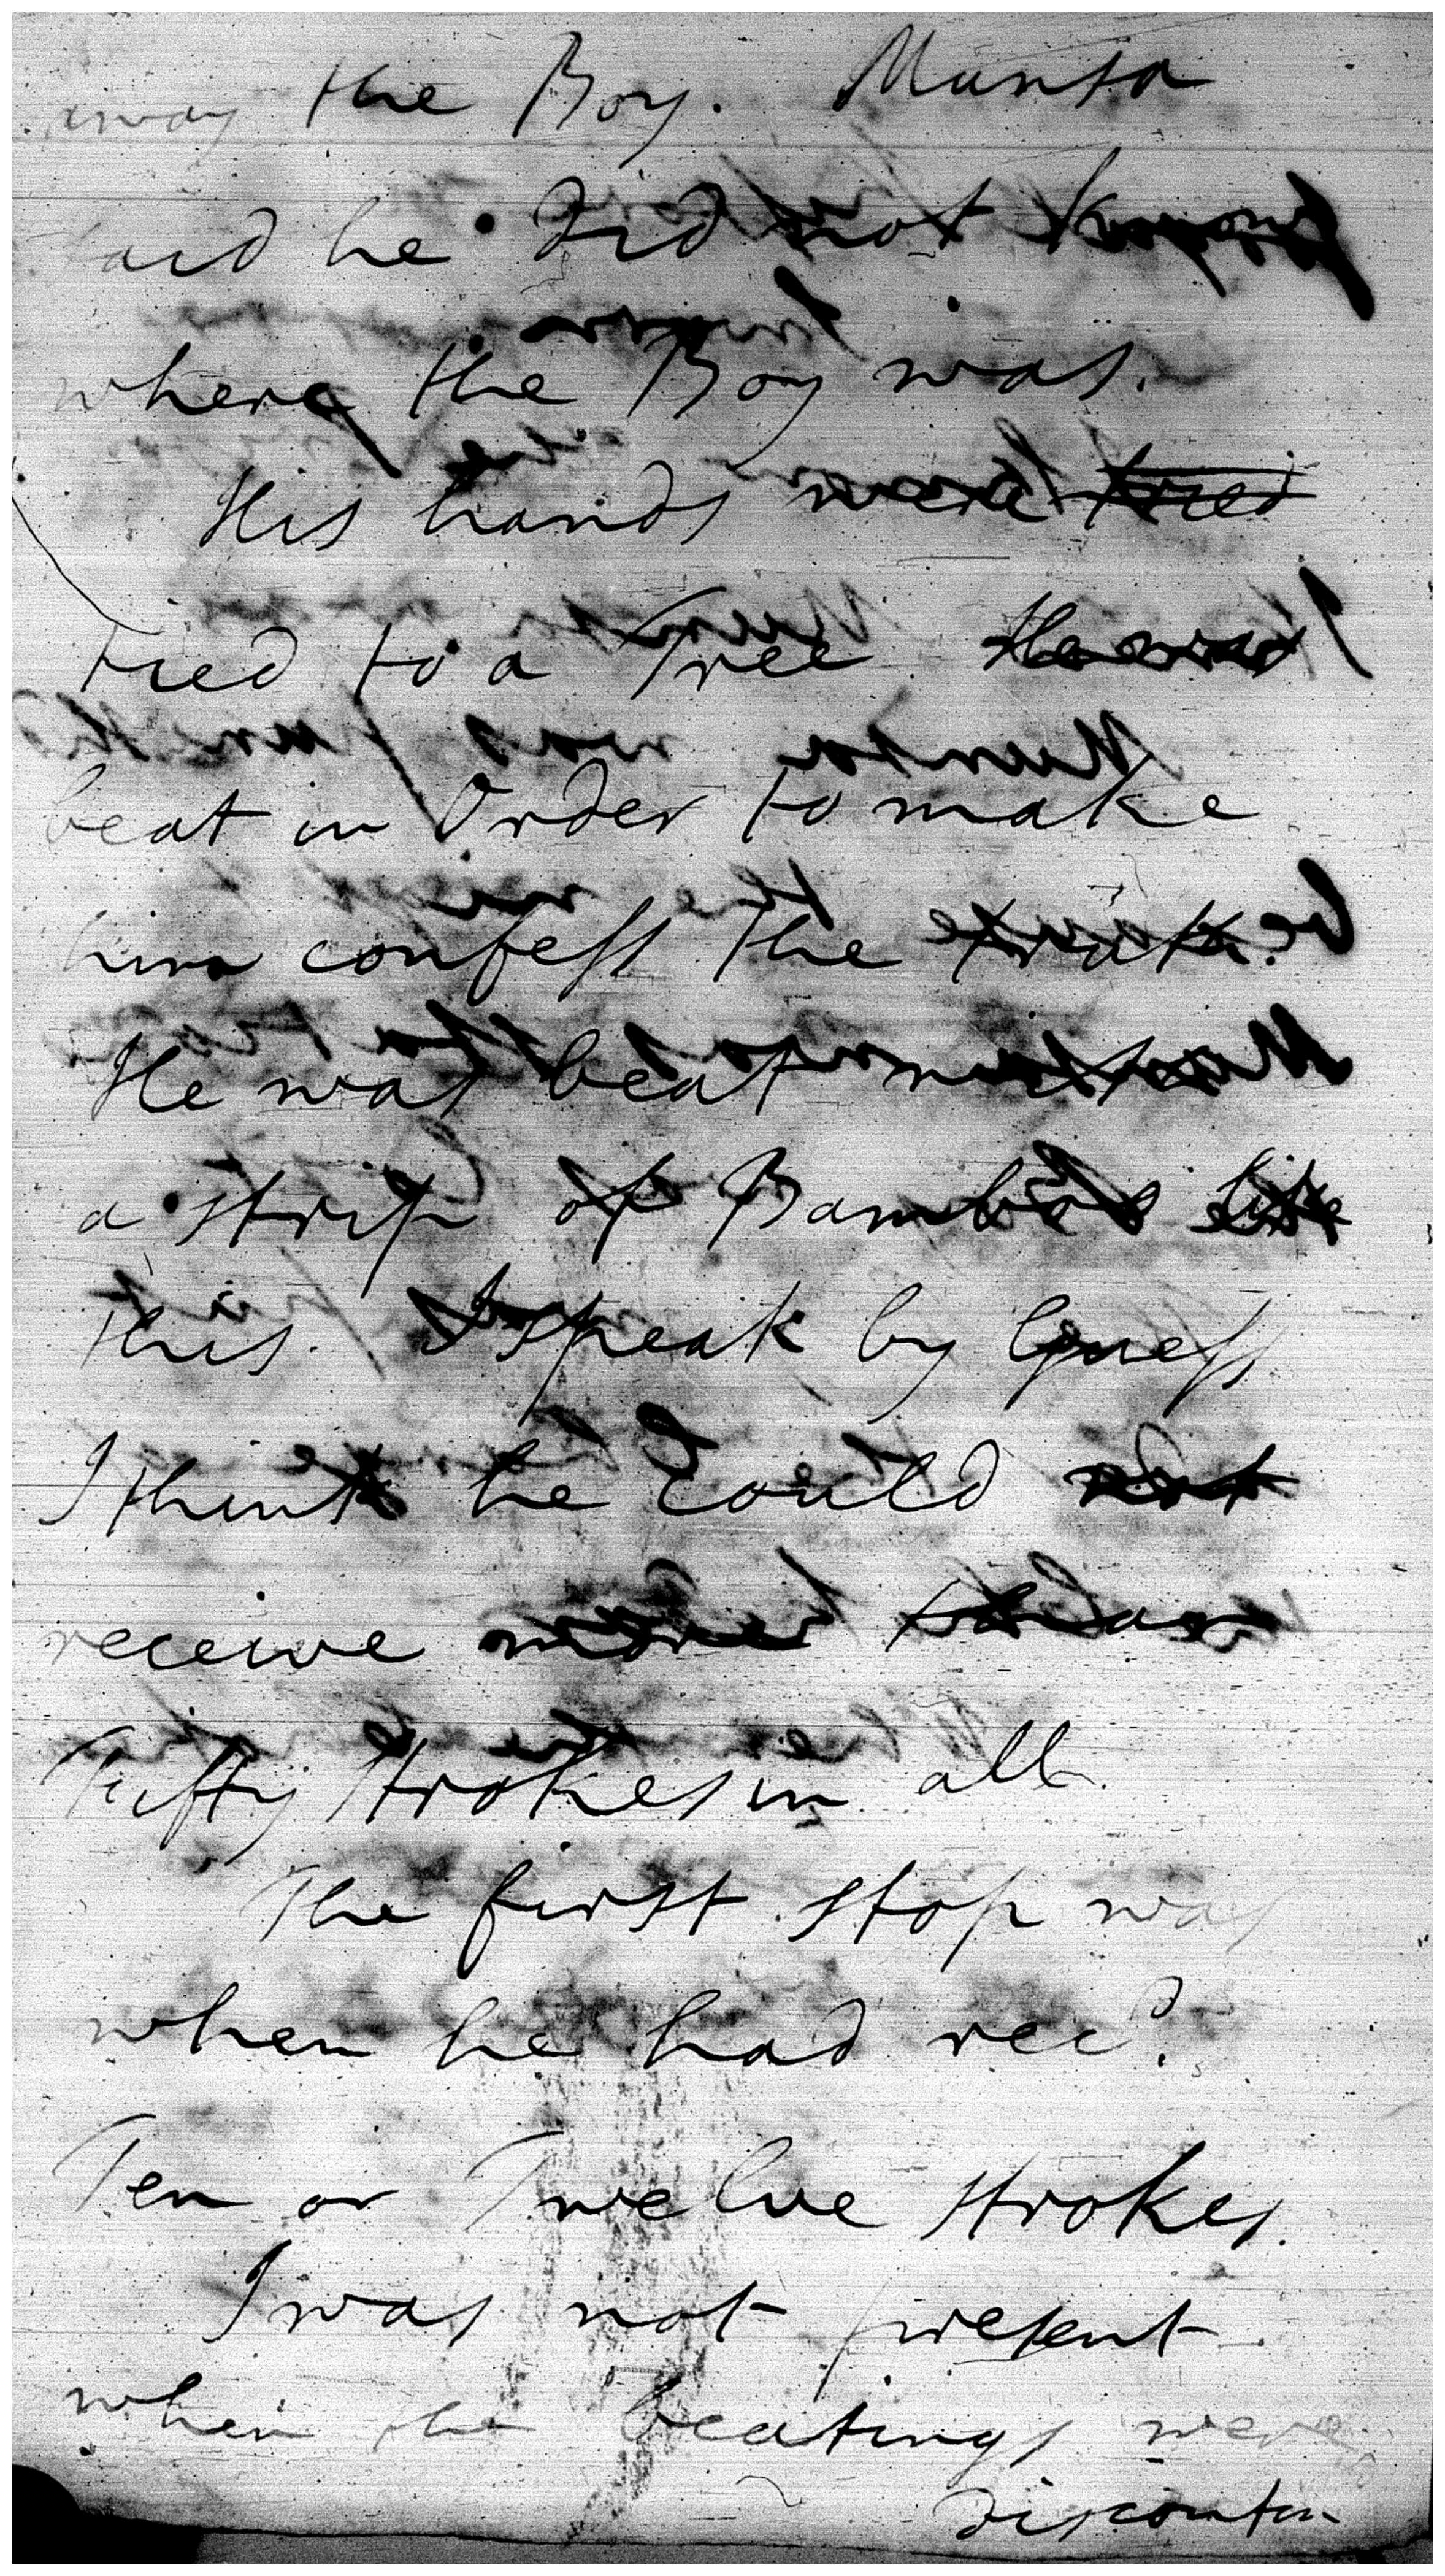 away the Boy. Munsa
said he did not know
where the Boy was.
His hands were tied
tied to a Tree. He was
beat in Order to make
him confess the truth.
He was beat with
a strip of Bamboo like
this. I speak by Guess
I think he could not
receive more than
Fifty Strokes in all.
The first stop was
when he had recd.
Ten or Twelve strokes.
I was not present
when the beatings were
discontin